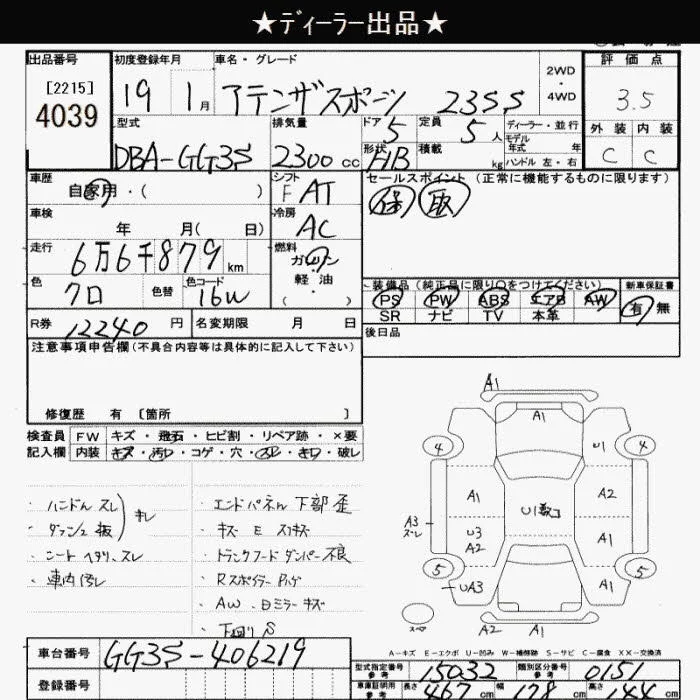 ★ディーラー出品★
出品番号
[2215]
4039
初度登録年月
19 1月
車名・グレード
アテンザスポーツ 23SS
2WD
・
4WD
評価点
3.5
外装 内装
C C
型式
DBA-GG3S
排気量
2300 cc
ドア
5
定員
5人
形状
HB
積載
kg
ディーラー・並行
モデル
年式 年
ハンドル 左・右
車歴
自家用・( )
シフト
F AT
セールスポイント (正常に機能するものに限ります)
保 取
車検
年 月( 日)
冷房
AC
走行
6万6千879 km
燃料
ガソリン
軽油
( ・ )
色
クロ
色替
色コード
16W
装備品 (純正品に限り○をつけてください)
PS PW ABS エアB AW
SR ナビ TV 本革
新車保証書
有 無
R券 12240 円
名変期限 月 日
後日品
注意事項申告欄(不具合内容等は具体的に記入して下さい)
修復歴 有 〔箇所 〕
検査員
記入欄
FW キズ・飛石・ヒビ割・リペア跡・×要
内装 キズ・汚レ・コゲ・穴・スレ・キレ・破レ
・ハンドル スレ
・車内汚レ
・エンドパネル 下部 歪
・キズ E スリキズ
・トランクフード ダンパー不良
・AW、ミラーキズ
・下回り S
A1
A1
4
U1
4
A1
A2
U1
A3
スレ
U3
A2
A1
5
UA3
A1
5
スペア
A2 A1
A-キズ E-エクボ U-凹み W-補修跡 S-サビ C-腐食 XX-交換済
車台番号 GG3S-406219
登録番号
型式指定番号
参考
15032
類別区分番号
参考
0151
車庫証明用
参考
長さ 467 cm 幅 178 cm 高さ 144 cm